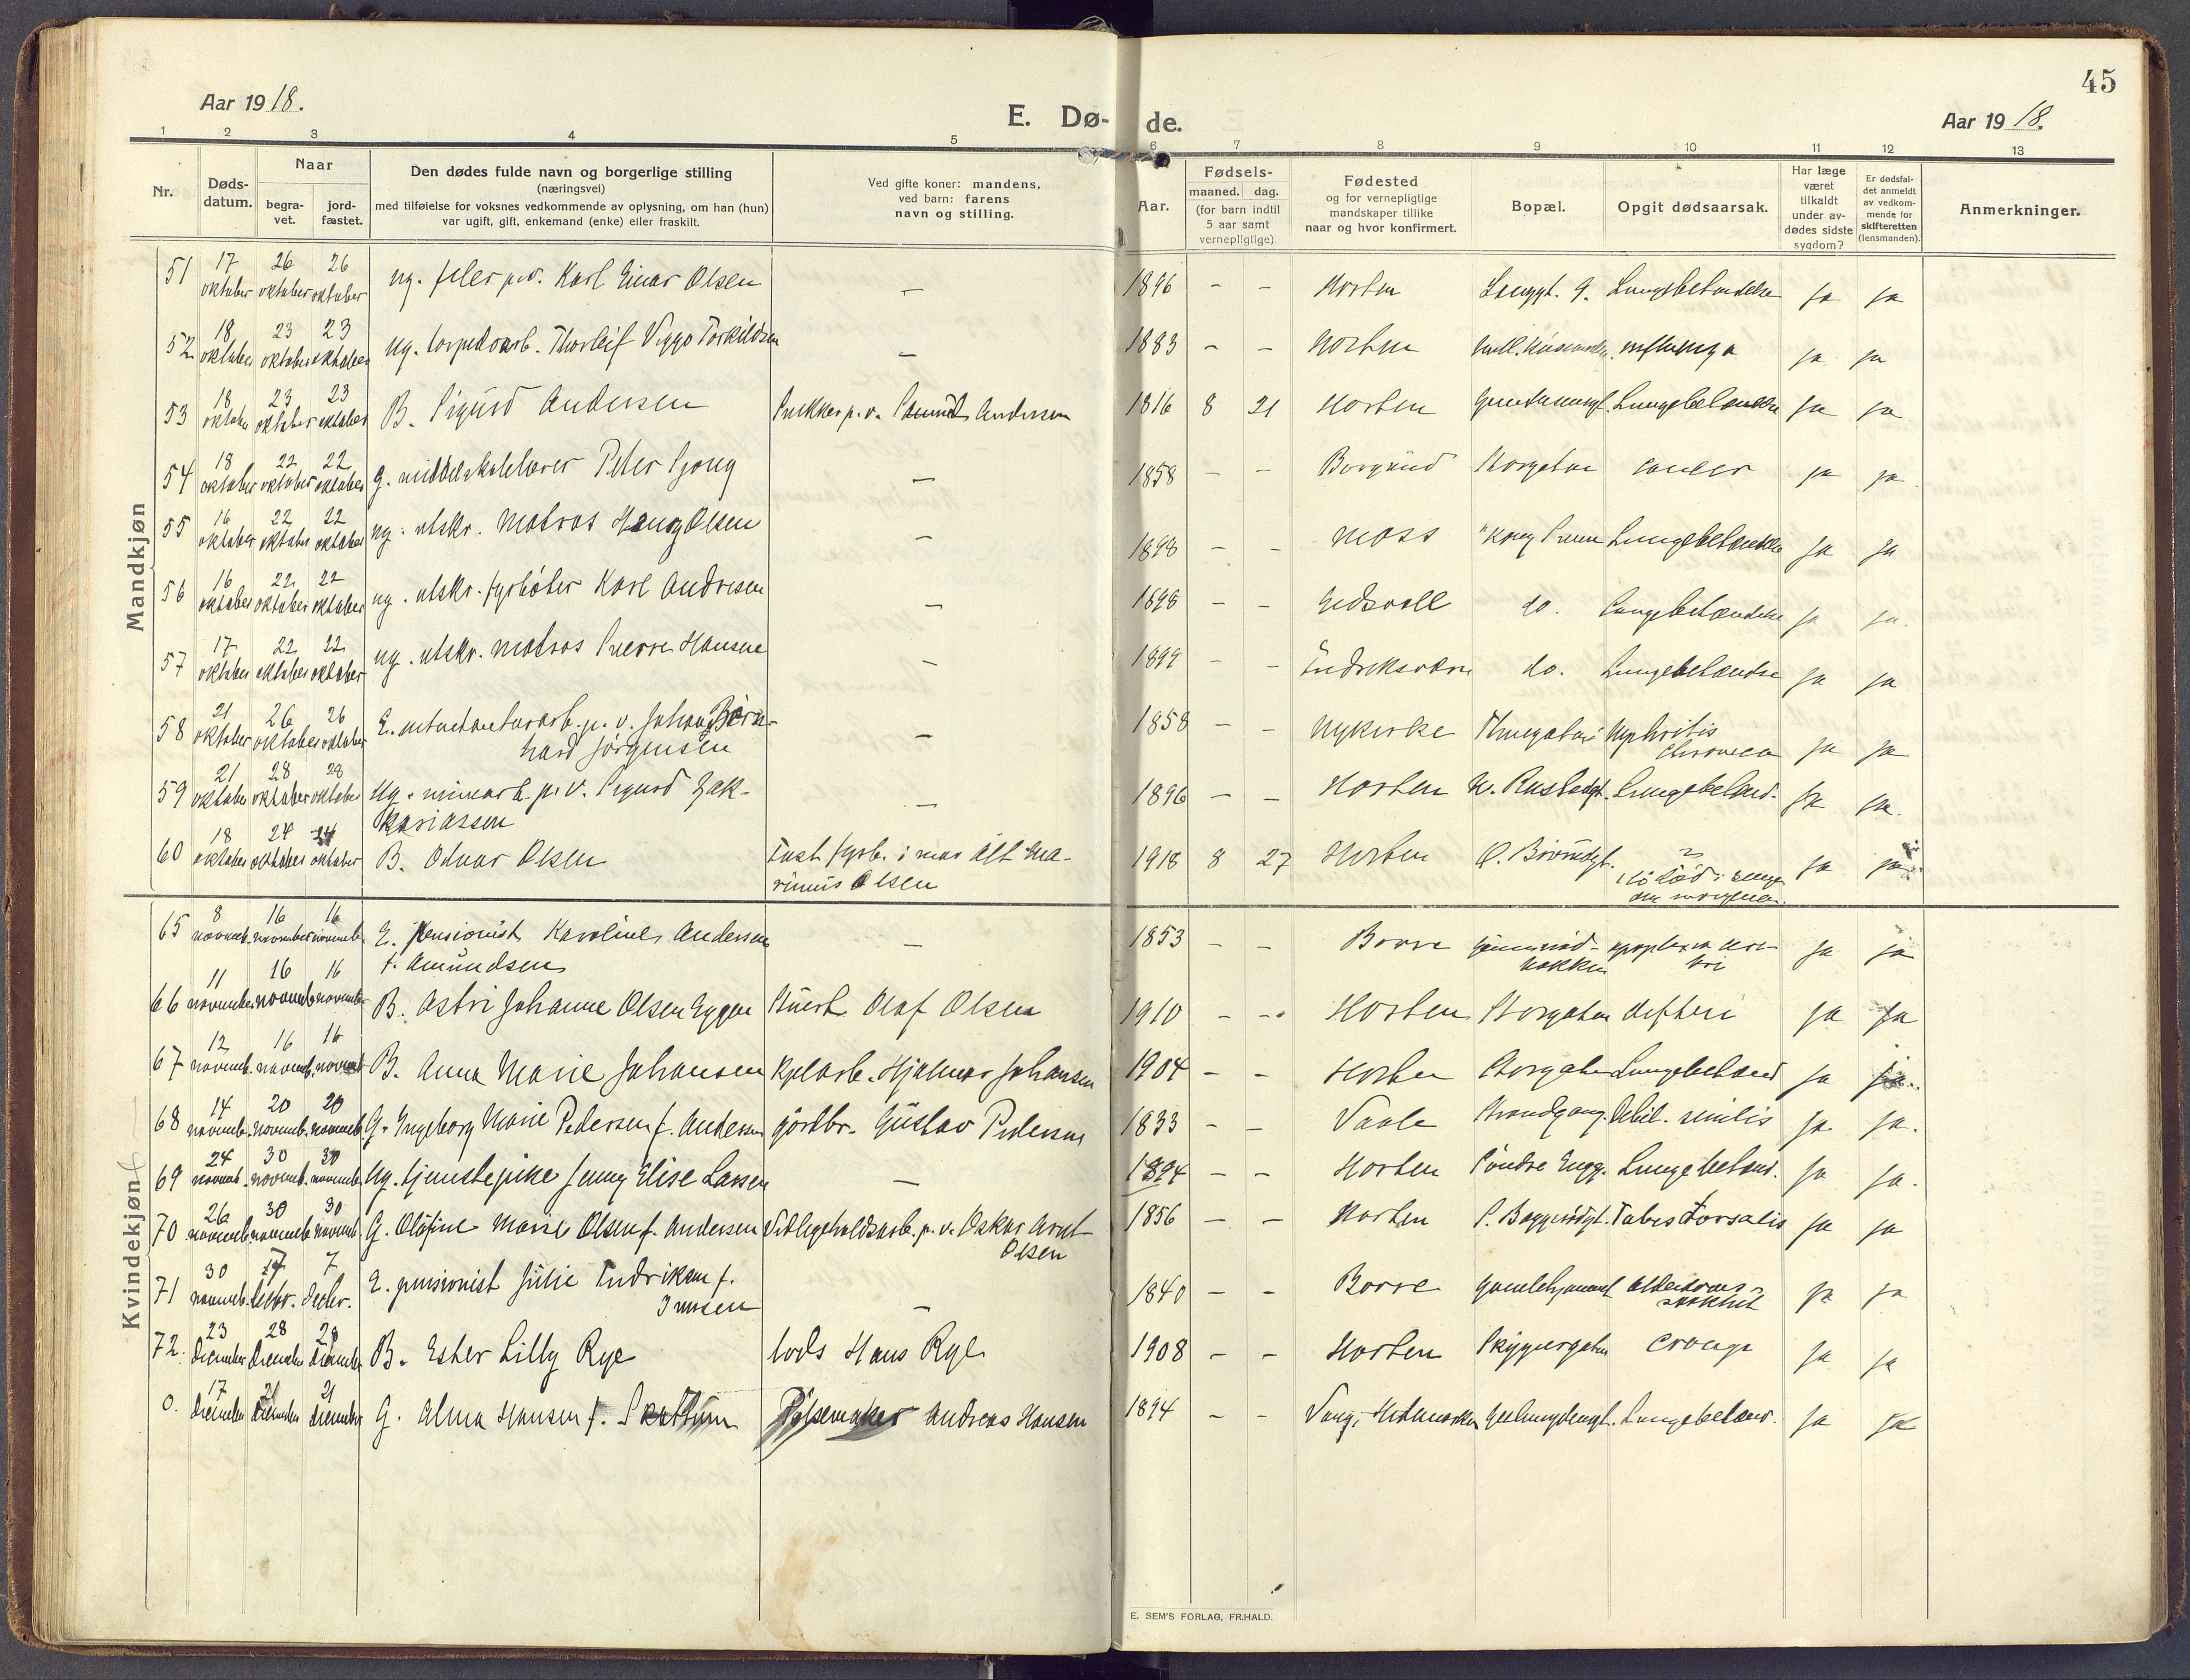 45
Aar 1918.
E. Dø- de.
Aar 1918.
1 2 3 4 5 6 7 8 9 10 11 12 13
Nr.
Døds-
datum.
Naar
begra-
vet.
jord-
fæstet.
Den dødes fulde navn og borgerlige stilling
(næringsvei)
med tilføielse for voksnes vedkommende av oplysning, om han (hun)
var ugift, gift, enkemand (enke) eller fraskilt.
Ved gifte koner: mandens,
ved barn: farens
navn og stilling.
Aar.
Fødsels-
maaned. dag.
(for barn indtil
5 aar samt
vernepligtige)
Fødested
og for vernepligtige
mandskaper tillike
naar og hvor konfirmert.
Bopæl.
Opgit dødsaarsak.
Har læge
været
tilkaldt
under av-
dødes sidste
sygdom?
Er dødsfal-
det anmeldt
av vedkom-
mende for
skifteretten
(lensmanden).
Anmerkninger.
Mandkjøn
51 17 oktober 26 oktober 26 oktober ug. filer p.v. Karl Einar Olsen — 1896 - - Horten Lungebetændelse ja ja
52 18 oktober 23 oktober 23 oktober ug. torpedoarb. Thorleif Viggo Torkildsen — 1883 - - Horten influenza ja ja
53 18 oktober 23 oktober 23 oktober B. Sigurd Andersen Snekker p.v. Andersen 1816 8 21 Horten Lungebetændelse ja ja
54 18 oktober 22 oktober 22 oktober G. middelskolelærer Peter — 1858 - - Borgund Storgaten cancer ja ja
55 16 oktober 22 oktober 22 oktober ug. utskr. matros Olsen — 1898 - - Moss Lungebetændelse ja ja
56 16 oktober 22 oktober 22 oktober ug. utskr. fyrbøter Karl Andresen — 1898 - - Eidsvoll do. Lungebetændelse ja ja.
57 17 oktober 22 oktober 22 oktober ug. utskr. matros Sverre Hansen — 1899 - - do. Lungebetændse ja ja
58 21 oktober 26 oktober 26 oktober E. p.v. Johan Børn-
hard Jørgensen — 1858 - Nykirke Nephritis
chronica ja ja
59 21 oktober 28 oktober 28 oktober Ug. minearb. p.v. Sigurd Zak-
kariassen — 1896 - - Horten Lungebetænd. ja ja.
60 18 oktober 24 oktober 24 oktober B. Odvar Olsen Fast fyrb. i mar Alf Ma-
rinius Olsen 1918 8 27 Horten ja ja
Kvindekjøn
65 8 novemb. 16 november 16 novemb. E. pensionist Karoline Andersen
f. Amundsen — 1853 - - Borre apoplexia ja ja
66 11 november 16 novemb. 16 november B. Astri Johanne Olsen Eggen Stuert Olaf Olsen 1910 - - Horten Storgaten difteri ja ja
67 12 novemb. 16 novemb. 16 novemb. B. Anna Marie Johansen Hjalmar Johansen 1904 - - Horten Storgaten Lungebetænd ja ja.
68 14 novemb. 20 novemb. 20 novemb. G. Ingeborg Marie Pedersen f. Andersen gårdbr. Gustav Pedersen 1833 - - Vaale Debil. senilis ja ja.
69 24 novemb. 30 novemb. 30 novemb. Ug. tjenestepike Jenny Elise Larsen — 1894 - - Horten Søndre Engg. Lungebetænd. ja ja.
70 26 novemb. 30 novemb. 30 novemb. G. Olufine Marie Olsen f. Andersen Vedligeholdsarb. p.v. Oskar Arnt
Olsen 1856 - - Horten Tabes Dorsalis ja ja
71 30 novemb. 7 decbr. 7 decbr. E. pensionist Julie Fredriksen f.
— 1840 - - Borre Gamlehjemmet Alderdoms-
svakhet ja ja
72. 23 December 28 December 28 December B. Ester Lilly Rye lods Hans Rye 1908 - - Horten Skippergaten croup ja ja
0. 17 December 21 December 21 December G. Alma Hansen f. Skattum Pølsemaker Andreas Hansen 1894 - - Vang, Hedemarken Lungebetænd. ja ja
E. SEM'S FORLAG, FR.HALD.